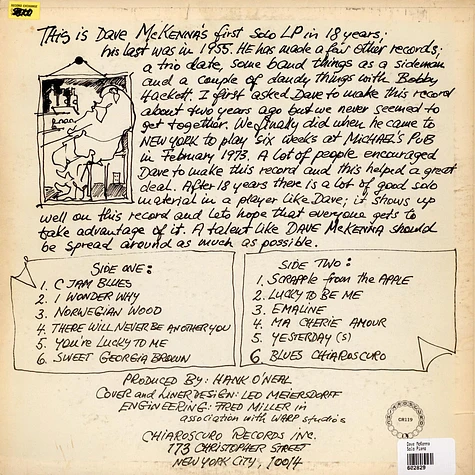 THis is DAVE McKENNA's first Solo LP in 18 years;
his last was in 1955. HE has made a few other records;
a trio date, some band things as a sideman
and a couple of dandy things with Bobby
Hackett. I first asked Dave to make this record
about two years ago but we never seemed to
get together. We finally did when he came to
NEW YORK to play six weeks at MICHAEL'S PUB
in February 1973. A lot of people encouraged
Dave to make this record and this helped a great
deal. After 18 years there is a lot of good solo
material in a player like Dave; it shows up
well on this record and lets hope that everyone gets to
take advantage of it. A talent like DAVE McKENNA should
be spread around as much as possible.
SIDE ONE:
1. C JAM BLUES
2. I WONDER WHY
3. NORWEGIAN WOOD
4. THERE WILL NEVER BE ANOTHER YOU
5. YOU'RE LUCKY TO ME
6. SWEET GEORGIA BROWN
SIDE TWO:
1. SCRAPPLE from the APPLE
2. LUCKY TO BE ME
3. EMALINE
4. MA CHERIE AMOUR
5. YESTERDAY(S)
6 BLUES CHIAROSCURO
PRODUCED BY: HANK O'NEAL
COVER and LINER DESIGN: LEO MEIERSDORFF
ENGINEERING: FRED MILLER in
association with WARP studios
CHIAROSCURO RECORDS inc.
173 CHRISTOPHER STREET
NEW YORK CITY, 10014
CR119
Dave McKenna
Solo Piano
602829